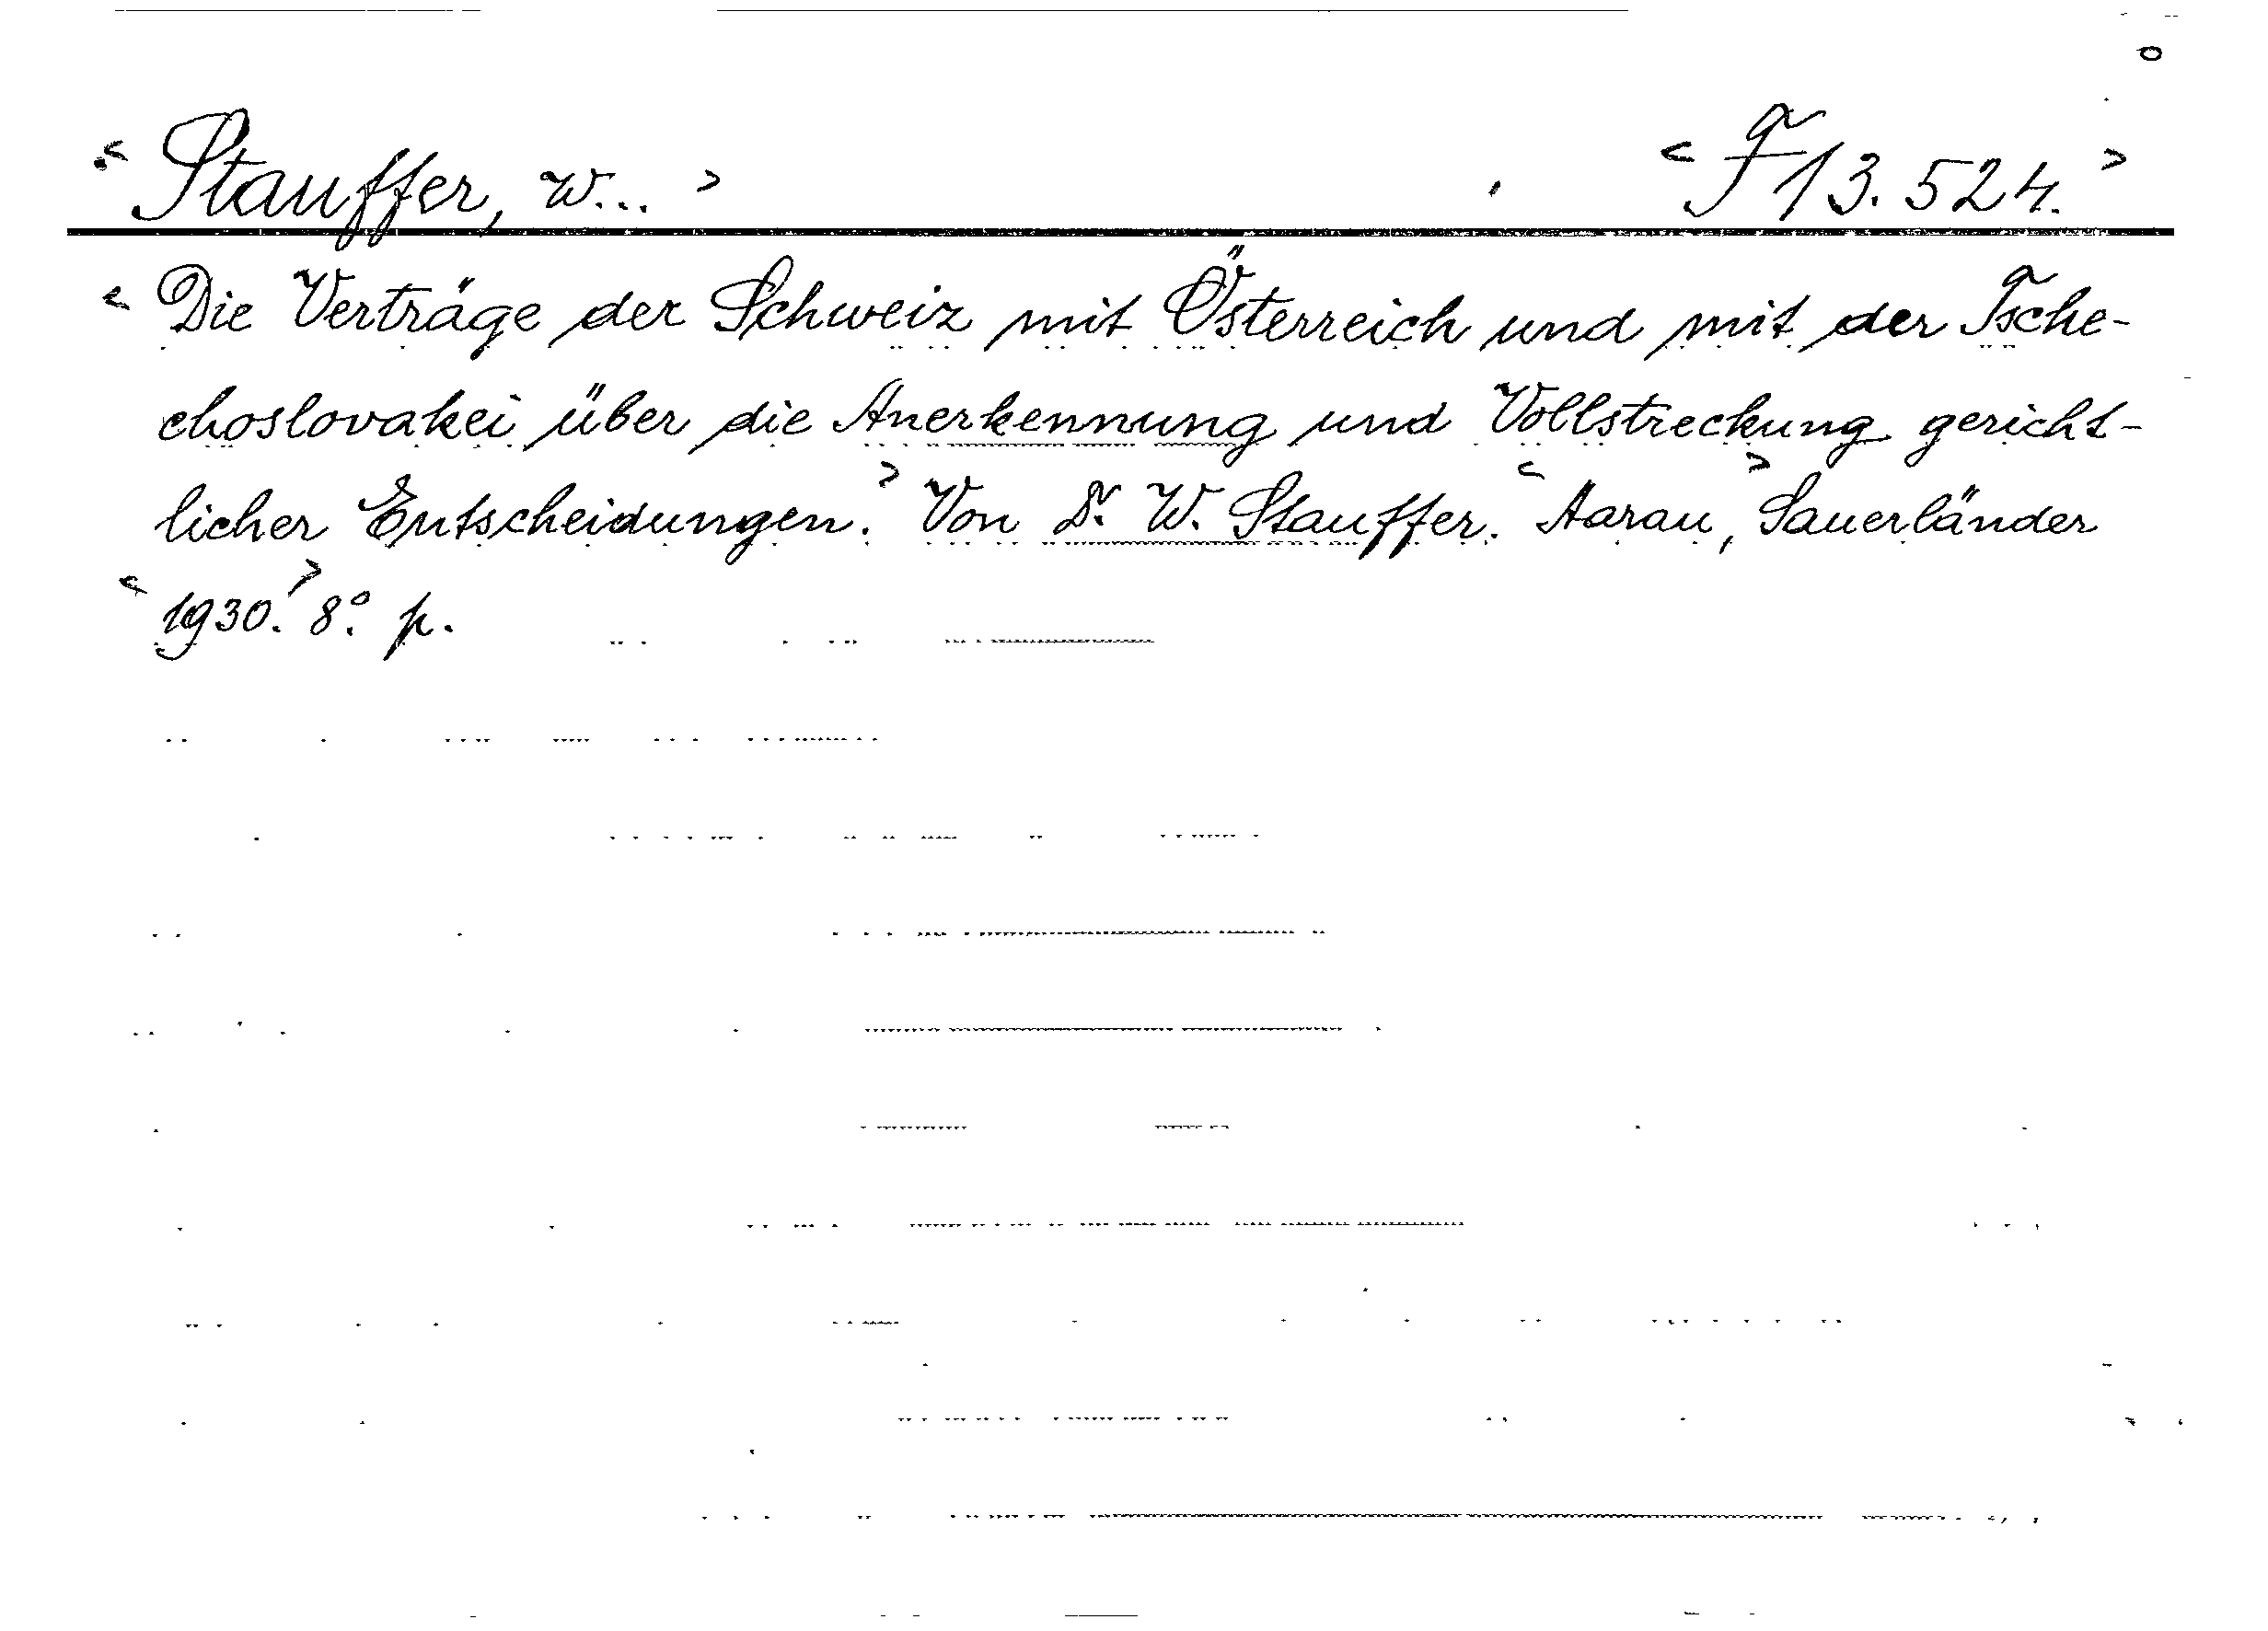 < Stauffer, W... > < F 13.524. >
< Die Verträge der Schweiz mit Österreich und mit der Tsche-
choslovakei über die Anerkennung und Vollstreckung gericht-
licher Entscheidungen. > Von Dr. W. Stauffer. < Aarau, > Sauerländer
< 1930. > 8° p.